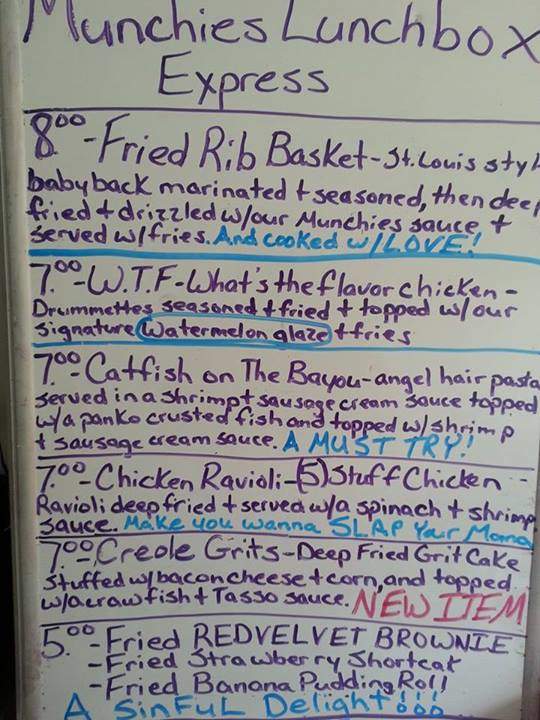 Munchies Lunchbox
Express
8.00-Fried Rib Basket-St. Louis styl
babyback marinated + seasoned, then deep
fried + drizzled w/our Munchies sauce +
served w/fries. And cooked w/LOVE!
7.00-W.T.F-What's the flavor chicken-
Drummettes seasoned + fried + topped w/our
signature Watermelon glaze + fries
7.00-Catfish on The Bayou-angel hair pasta
served in a shrimp + sausage cream sauce topped
w/a panko crusted fish and topped w/shrimp
+ sausage cream sauce. A MUST TRY!
7.00-Chicken Ravioli-(5) Stuff Chicken
Ravioli deep fried + served w/a spinach + shrimp
sauce. Make you wanna SLAP Your Mama
7.00-Creole Grits-Deep Fried Grit Cake
Stuffed w/bacon cheese + corn, and topped
w/a crawfish + Tasso sauce. NEW ITEM
5.00-Fried REDVELVET BROWNIE
-Fried Strawberry Shortcak
-Fried Banana Pudding Roll
A SinFuL Delight!!!